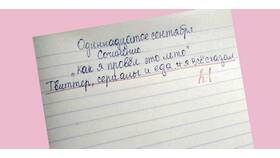 Одиннадцатое сентября
Сочинение
"Как я провёл это лето"
Твиттер, сериалы и еда - я всё сказал.